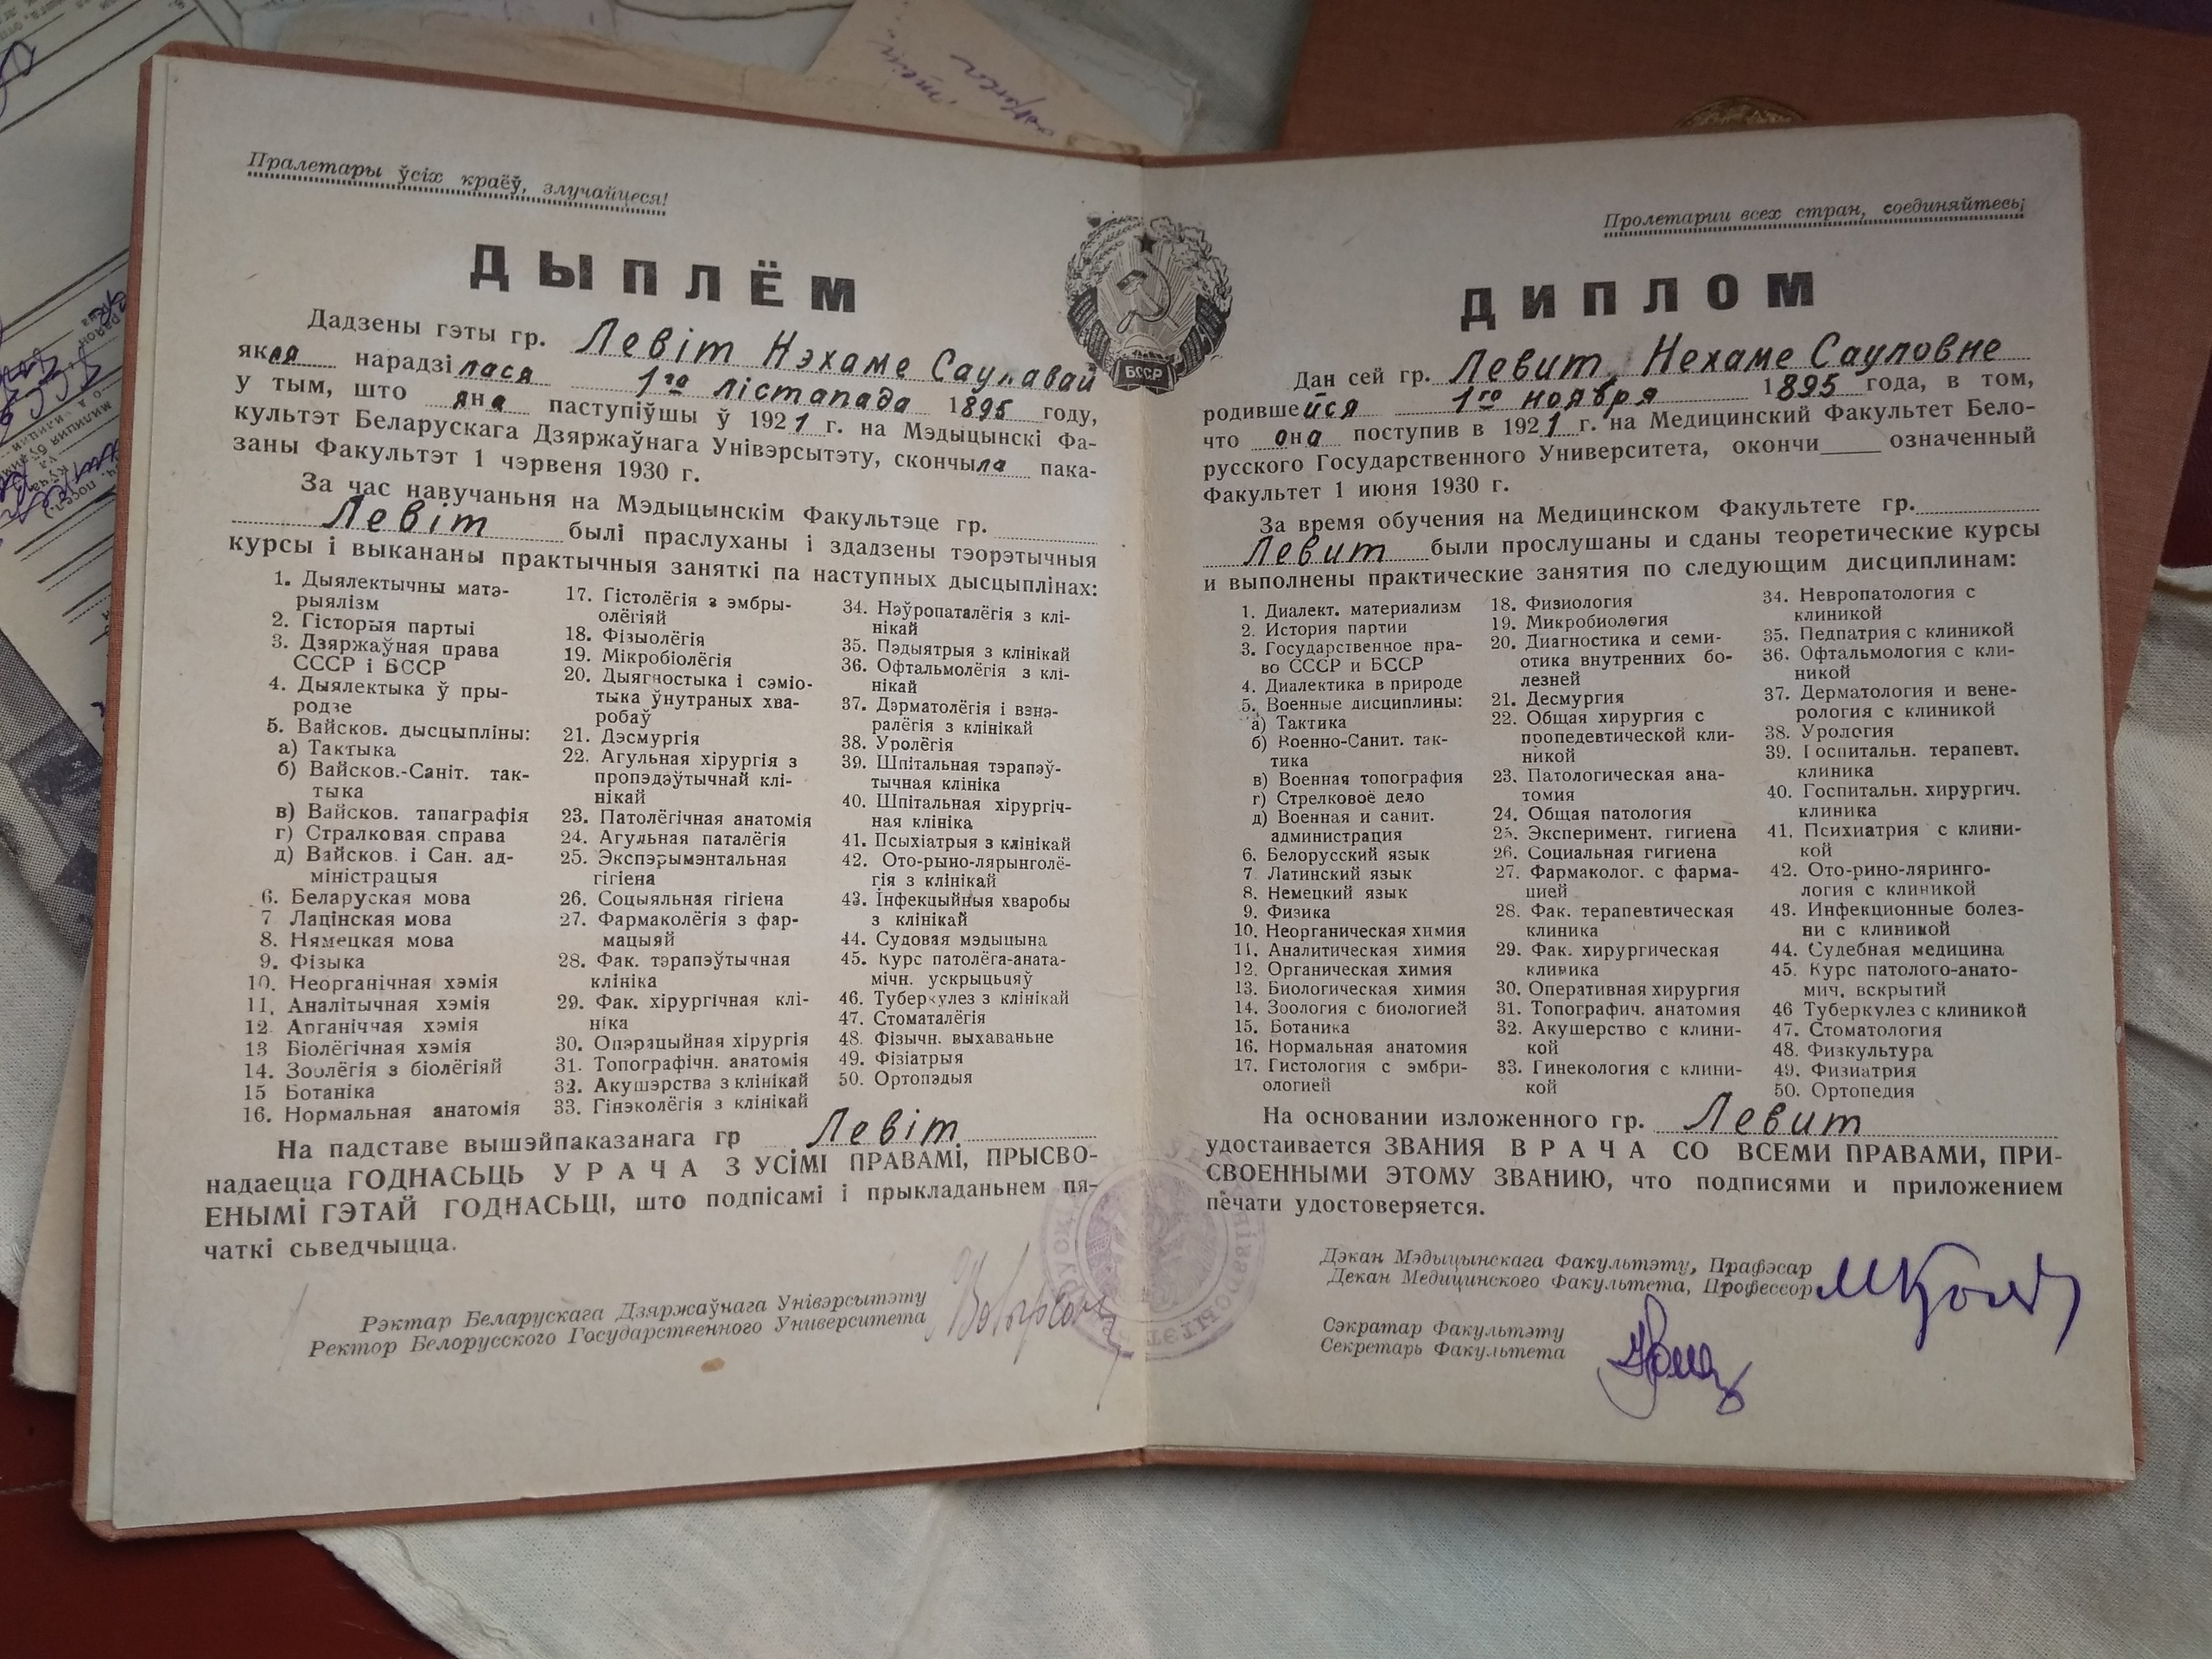 Пралетары ўсіх краёў, злучайцеся!
ДЫПЛЁМ
Дадзены гэты гр. Левіт Нэхаме Саулавай
якая нарадзілася 1го лістапада 1895 году,
у тым, што яна паступіўшы ў 1921 г. на Мэдыцынскі Фа-
культэт Беларускага Дзяржаўнага Унівэрсытэту, скончыла пака-
заны Факультэт 1 чэрвеня 1930 г.
За час навучаньня на Мэдыцынскім Факультэце гр.
Левіт былі праслуханы і здадзены тэорэтычныя
курсы і выкананы практычныя заняткі па наступных дысцыплінах:
1. Дыялектычны матэ-
рыялізм
2. Гісторыя партыі
3. Дзяржаўная права
СССР і БССР
4. Дыялектыка ў пры-
родзе
5. Вайсков. дысцыпліны:
а) Тактыка
б) Вайсков.-Саніт. так-
тыка
в) Вайсков. тапаграфія
г) Стралковая справа
д) Вайсков. і Сан. ад-
міністрацыя
6. Беларуская мова
7 Лацінская мова
8. Нямецкая мова
9. Фізыка
10. Неорганічная хэмія
11. Аналітычная хэмія
12. Арганічная хэмія
13 Біолёгічная хэмія
14. Зоолёгія з біолёгіяй
15 Ботаніка
16. Нормальная анатомія
17. Гістолёгія з эмбры-
олёгіяй
18. Фізыолёгія
19. Мікробіолёгія
20. Дыягностыка і сэміо-
тыка ўнутраных хва-
робаў
21. Дэсмургія
22. Агульная хірургія з
пропэдэўтычнай клі-
нікай
23. Патолёгічная анатомія
24. Агульная паталёгія
25. Экспэрымэнтальная
гігіена
26. Соцыяльная гігіена
27. Фармаколёгія з фар-
мацыяй
28. Фак. тэрапэўтычная
клініка
29. Фак. хірургічная клі-
ніка
30. Опэрацыйная хірургія
31. Топографічн. анатомія
32. Акушэрства з клінікай
33. Гінэколёгія з клінікай
34. Нэўропаталёгія з клі-
нікай
35. Пэдыятрыя з клінікай
36. Офтальмолёгія з клі-
нікай
37. Дэрматолёгія і вэнэ-
ралёгія з клінікай
38. Уролёгія
39. Шпітальная тэрапэў-
тычная клініка
40. Шпітальная хірургіч-
ная клініка
41. Псыхіатрыя з клінікай
42. Ото-рыно-лярынголё-
гія з клінікай
43. Інфекцыйныя хваробы
з клінікай
44. Судовая мэдыцына
45. Курс патолёга-аната-
мічн. ускрыцьцяў
46. Туберкулез з клінікай
47. Стоматалёгія
48. Фізычн. выхаваньне
49. Фізіатрыя
50. Ортопэдыя
На падставе вышэйпаказанага гр Левіт
надаецца ГОДНАСЬЦЬ УРАЧА З УСІМІ ПРАВАМІ, ПРЫСВО-
ЕНЫМІ ГЭТАЙ ГОДНАСЬЦІ, што подпісамі і прыкладаньнем пя-
чаткі сьведчыцца.
Рэктар Беларускага Дзяржаўнага Унівэрсытэту
Ректор Белорусского Государственного Университета
БССР
Пролетарии всех стран, соединяйтесь!
ДИПЛОМ
Дан сей гр. Левит, Нехаме Сауловне
родившейся 1го ноября 1895 года, в том,
что она поступив в 1921 г. на Медицинский Факультет Бело-
русского Государственного Университета, окончи____ означенный
Факультет 1 июня 1930 г.
За время обучения на Медицинском Факультете гр.
Левит были прослушаны и сданы теоретические курсы
и выполнены практические занятия по следующим дисциплинам:
1. Диалект. материализм
2. История партии
3. Государственное пра-
во СССР и БССР
4. Диалектика в природе
5. Военные дисциплины:
а) Тактика
б) Военно-Санит. так-
тика
в) Военная топография
г) Стрелковое дело
д) Военная и санит.
администрация
6. Белорусский язык
7. Латинский язык
8. Немецкий язык
9. Физика
10. Неорганическая химия
11. Аналитическая химия
12. Органическая химия
13. Биологическая химия
14. Зоология с биологией
15. Ботаника
16. Нормальная анатомия
17. Гистология с эмбри-
ологией
18. Физиология
19. Микробиология
20. Диагностика и семи-
отика внутренних бо-
лезней
21. Десмургия
22. Общая хирургия с
пропедевтической кли-
никой
23. Патологическая ана-
томия
24. Общая патология
25. Эксперимент. гигиена
26. Социальная гигиена
27. Фармаколог. с фарма-
цией
28. Фак. терапевтическая
клиника
29. Фак. хирургическая
клиника
30. Оперативная хирургия
31. Топографич. анатомия
32. Акушерство с клини-
кой
33. Гинекология с клини-
кой
34. Невропатология с
клиникой
35. Педпатрия с клиникой
36. Офтальмология с кли-
никой
37. Дерматология и вене-
рология с клиникой
38. Урология
39. Госпитальн. терапевт.
клиника
40. Госпитальн. хирургич.
клиника
41. Психиатрия с клини-
кой
42. Ото-рино-ляринго-
логия с клиникой
43. Инфекционные болез-
ни с клиникой
44. Судебная медицина
45. Курс патолого-анато-
мич. вскрытий
46 Туберкулез с клиникой
47. Стоматология
48. Физкультура
49. Физиатрия
50. Ортопедия
На основании изложенного гр. Левит
удостаивается ЗВАНИЯ ВРАЧА СО ВСЕМИ ПРАВАМИ, ПРИ-
СВОЕННЫМИ ЭТОМУ ЗВАНИЮ, что подписями и приложением
печати удостоверяется.
Дэкан Мэдыцынскага Факультэту, Прафэсар
Декан Медицинского Факультета, Профессор
Сэкратар Факультэту
Секретарь Факультета